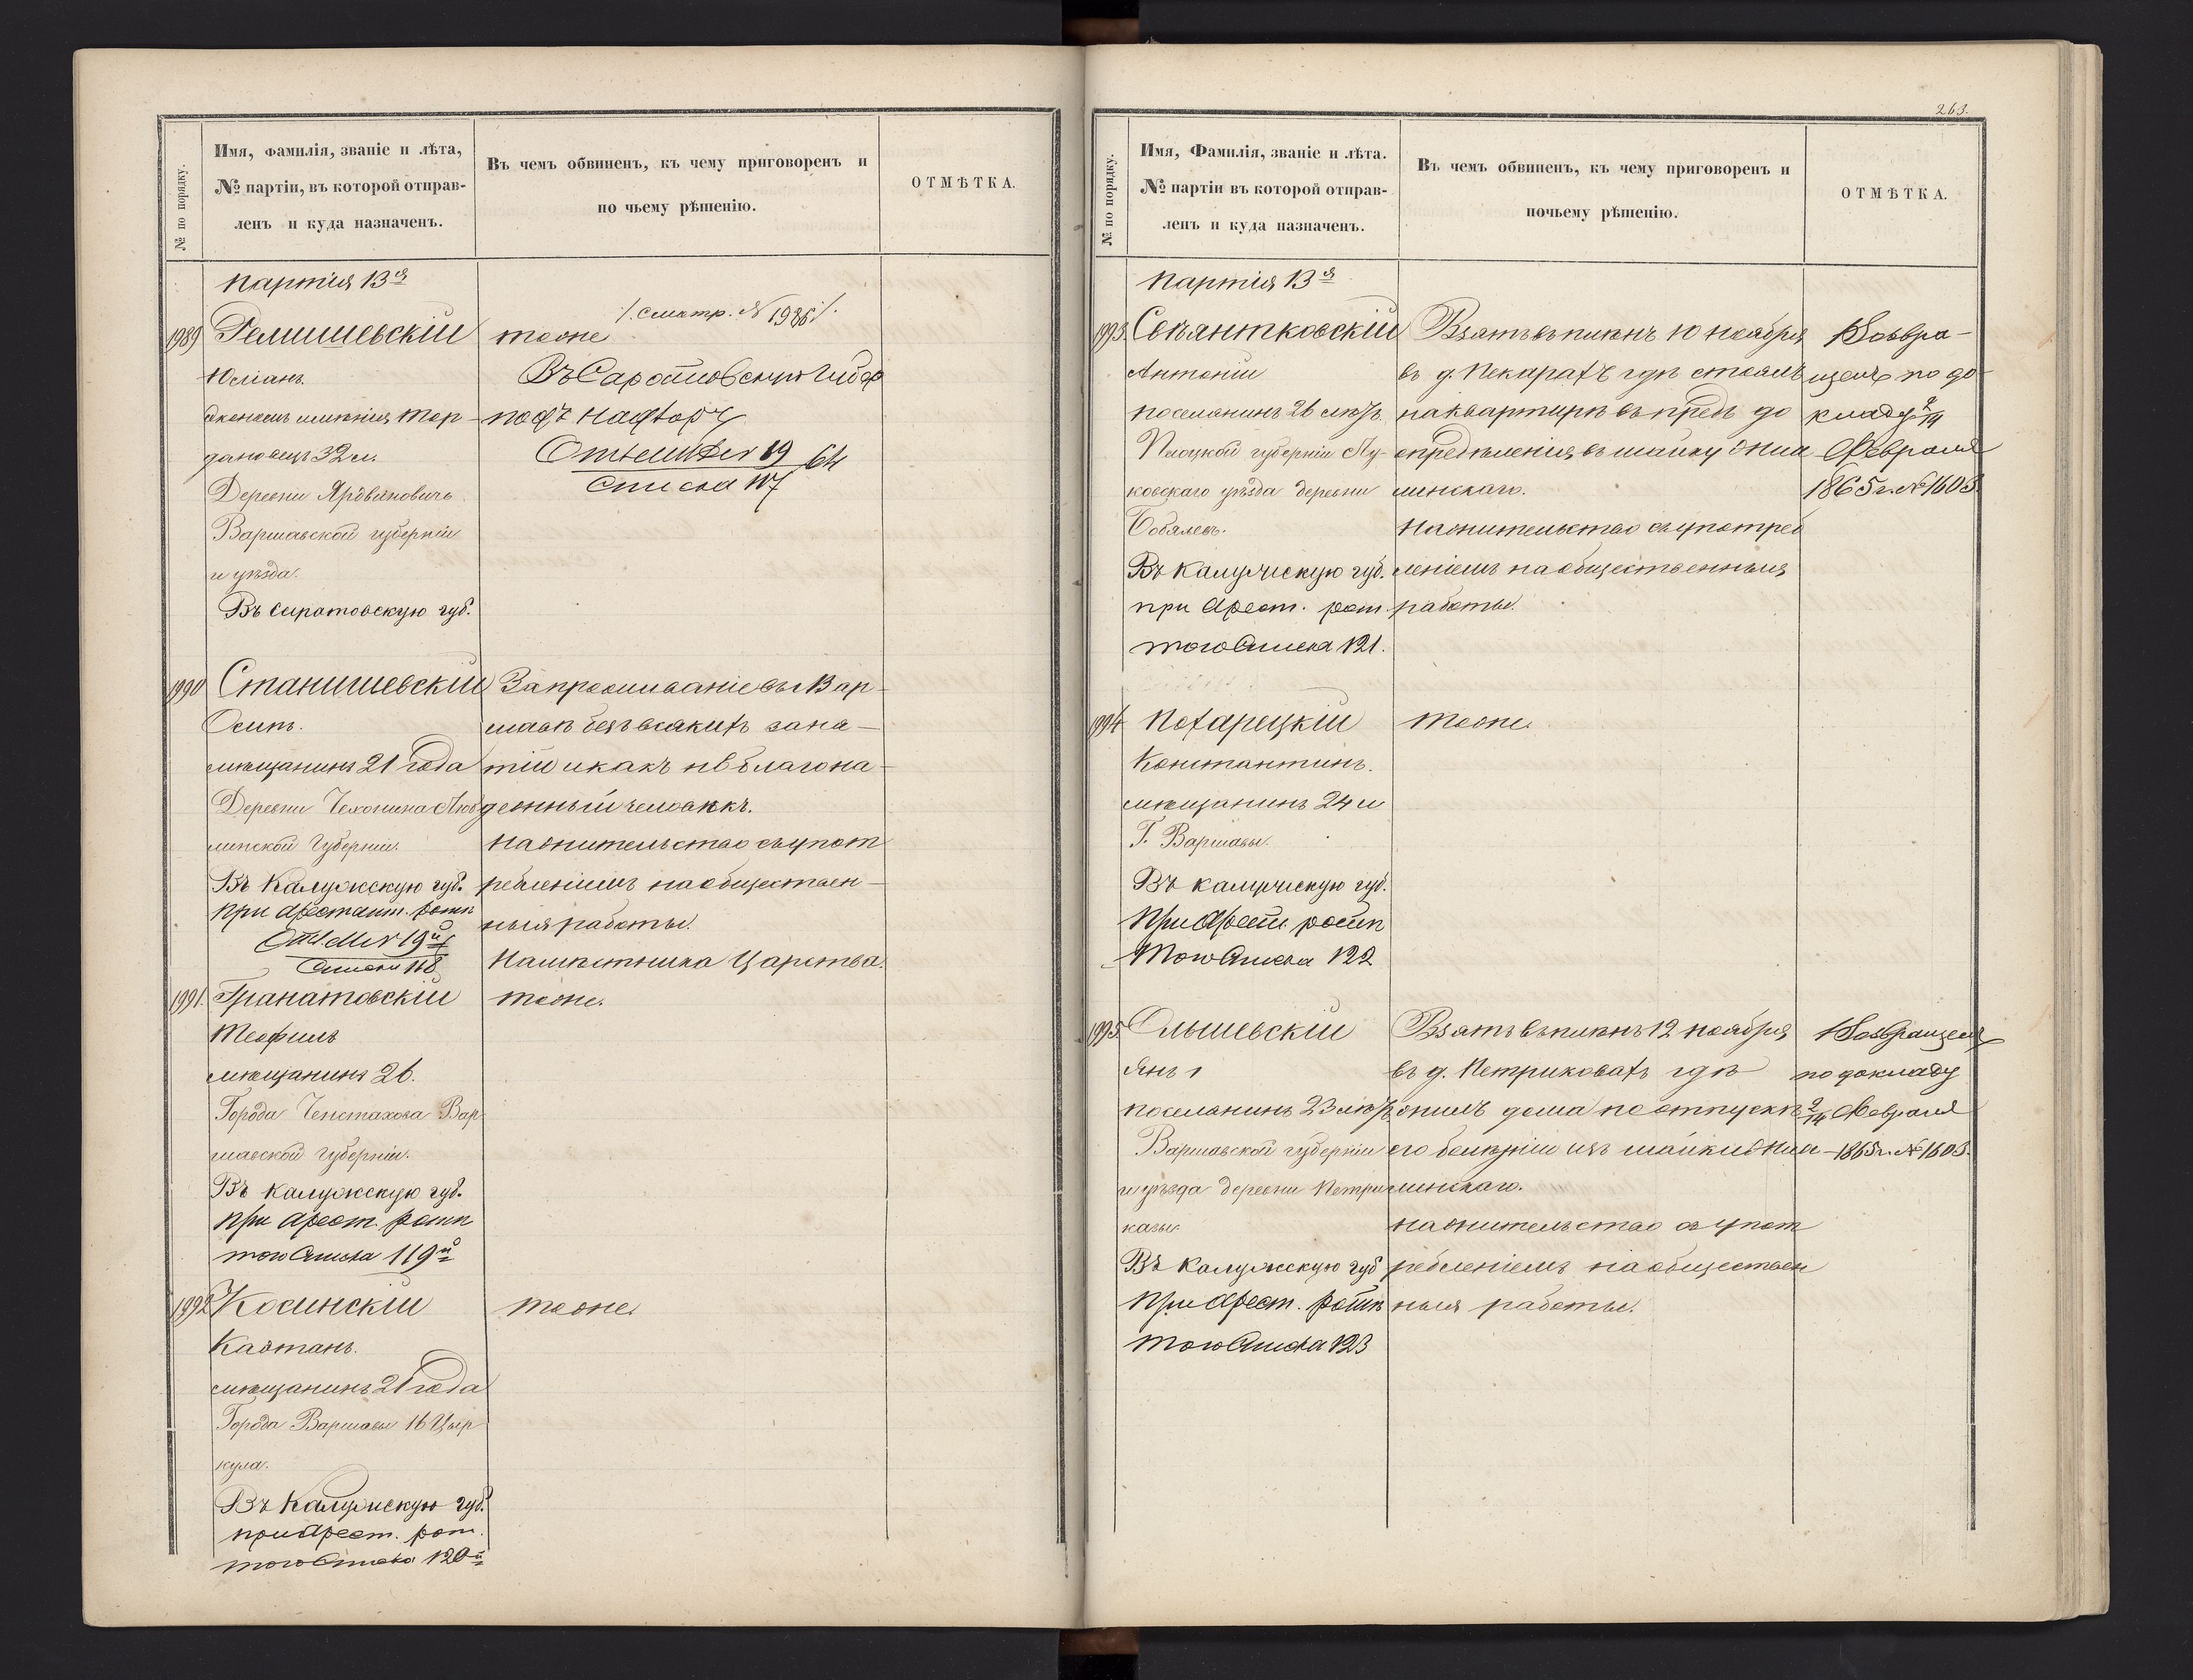 № по порядку.
Имя, фамилія, званіе и лѣта,
№ партіи, въ которой отправ-
ленъ и куда назначенъ.
Въ чемъ обвиненъ, къ чему приговоренъ и
по чьему рѣшенію.
ОТМѢТКА.
партія 13я
1989
тоже
/. смотр. №
Юліанъ.
Въ Саратовскую губер
экономъ имѣнія
подъ надзоръ
32 л.
19 64
Деревни
Списка 117
Варшавской губерніи
и уѣзда.
Въ Саратовскую губ.
1990 Станишевскій
Осипъ.
мѣщанинъ 21 года
Деревни Люб
линской Губерніи.
Въ Калужскую губ.
при арестант. ротѣ
19й
Списка 118
въ Вар-
шавѣ безъ всякихъ заня-
тій и какъ неблагона-
дежный человѣкъ.
на жительство съ упот
ребленіемъ на обществен-
ныя работы.
Намѣстника Царства.
1991. Гранатовскій
тоже.
Теофилъ
мѣщанинъ 26.
Города Ченстахова Вар
шавской губерніи.
Въ Калужскую губ.
при арест. ротѣ
того Списка 119й
1992 Косинскій
тоже.
Каэтанъ.
мѣщанинъ 21 года
Города Варшавы 16 Цыр
кула.
Въ Калужскую губ.
при арест. рот.
того Списка 120й
263.
№ по порядку.
Имя, Фамилія, званіе и лѣта.
№ партіи въ которой отправ-
ленъ и куда назначенъ.
Въ чемъ обвиненъ, къ чему приговоренъ и
почьему рѣшенію.
ОТМѢТКА.
партія 13я
1993.
Антоній
поселянинъ 26 лѣтъ
Плоцкой губерніи
уѣзда деревни
Въ Калужскую губ.
при Арест. рот.
того Списка 121.
Взятъ въ плѣнъ 10 ноября
въ д. гдѣ стоялъ
на квартирѣ въ предь до
опредѣленія въ шайку
минскаго.
На жительство съ употреб
леніемъ на общественныя
работы.
Возвра-
щенъ по до-
кладу 2/14
Февраля
1865 г. № 1603.
1994
тоже.
Константинъ.
мѣщанинъ 24 л
Г. Варшавы.
Въ Калужскую губ.
При Арест. ротѣ
Того Списка 122
1995. Ольшевскій
Янъ
поселянинъ 23 лѣтъ
Варшавской губерніи
и уѣзда деревни Петри
казы.
Въ Калужскую губ
При Арест. ротѣ
Того Списка 123
Взятъ въ плѣнъ 12 ноября
въ д. Петриковахъ гдѣ
жилъ дома по отпускѣ
его болѣзни изъ шайки
минскаго.
на жительство съ упот
ребленіемъ на обществен
ныя работы.
Возвращенъ
по докладу
2/14 Февраля
1865 г. № 1603.